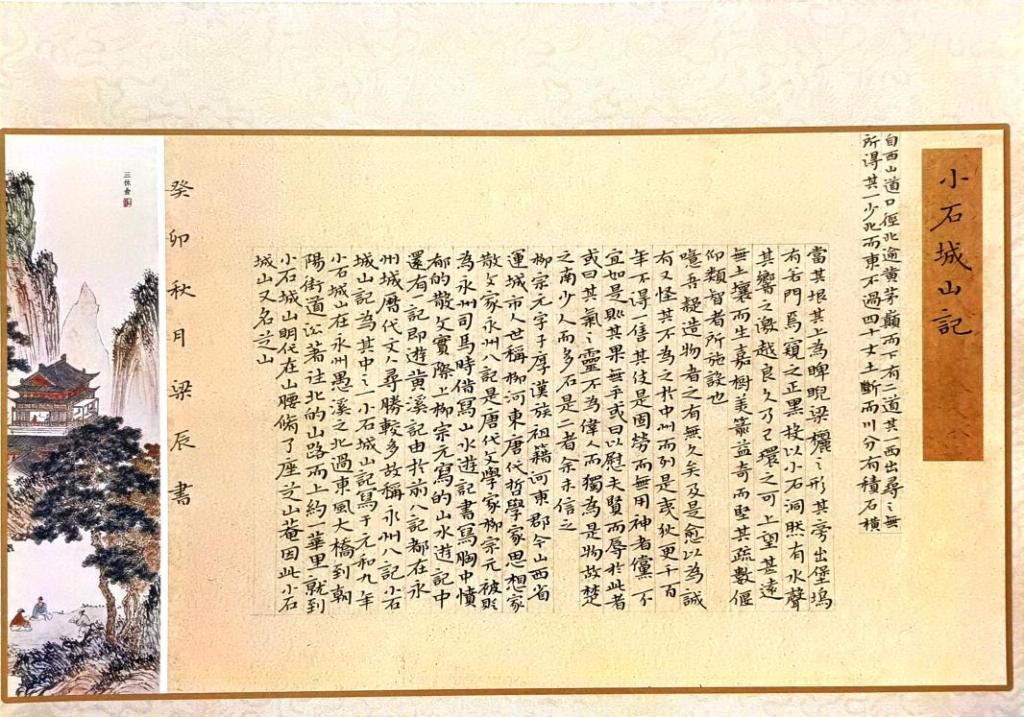 小石城山記
自西山道口徑北逾黄茅巔而下有二道其一西出尋之無
所得其一少北而東不過四十丈土斷而川分有積石橫
當其垠其上為睥睨梁欐之形其旁出堡塢
有若門焉窺之正黑投以小石洞然有水聲
其響之激越良久乃已環之可上望甚遠
無土壤而生嘉樹美箭益奇而堅其疏數偃
仰類智者所施設也
噫吾疑造物者之有無久矣及是愈以為誠
有又怪其不為之於中州而列是或狄更千百
年不得一售其伎是固勞而無用神者儻不
宜如是則其果無乎或曰以慰夫賢而辱於此者
或曰其氣之靈不為偉人而獨為是物故楚
之南少人而多石是二者余未信之
柳宗元字子厚漢族祖籍河東郡今山西省
運城市人世稱柳河東唐代哲學家思想家
散文家永州八記是唐代文學家柳宗元被貶
為永州司馬時借寫山水遊記書寫胸中憤
郁的散文實際上柳宗元寫的山水遊記中
還有一記即遊黄溪記由於前八記都在永
州城曆代文人尋勝較多故稱永州八記小石
城山記為其中之一小石城山記寫于元和九年
小石城山在永州愚溪之北過東風大橋到朝
陽街道訟著往北的山路而上約一華里就到
小石城山明代在山腰脩了座芝山菴因此小石
城山又名芝山
癸卯秋月梁辰書